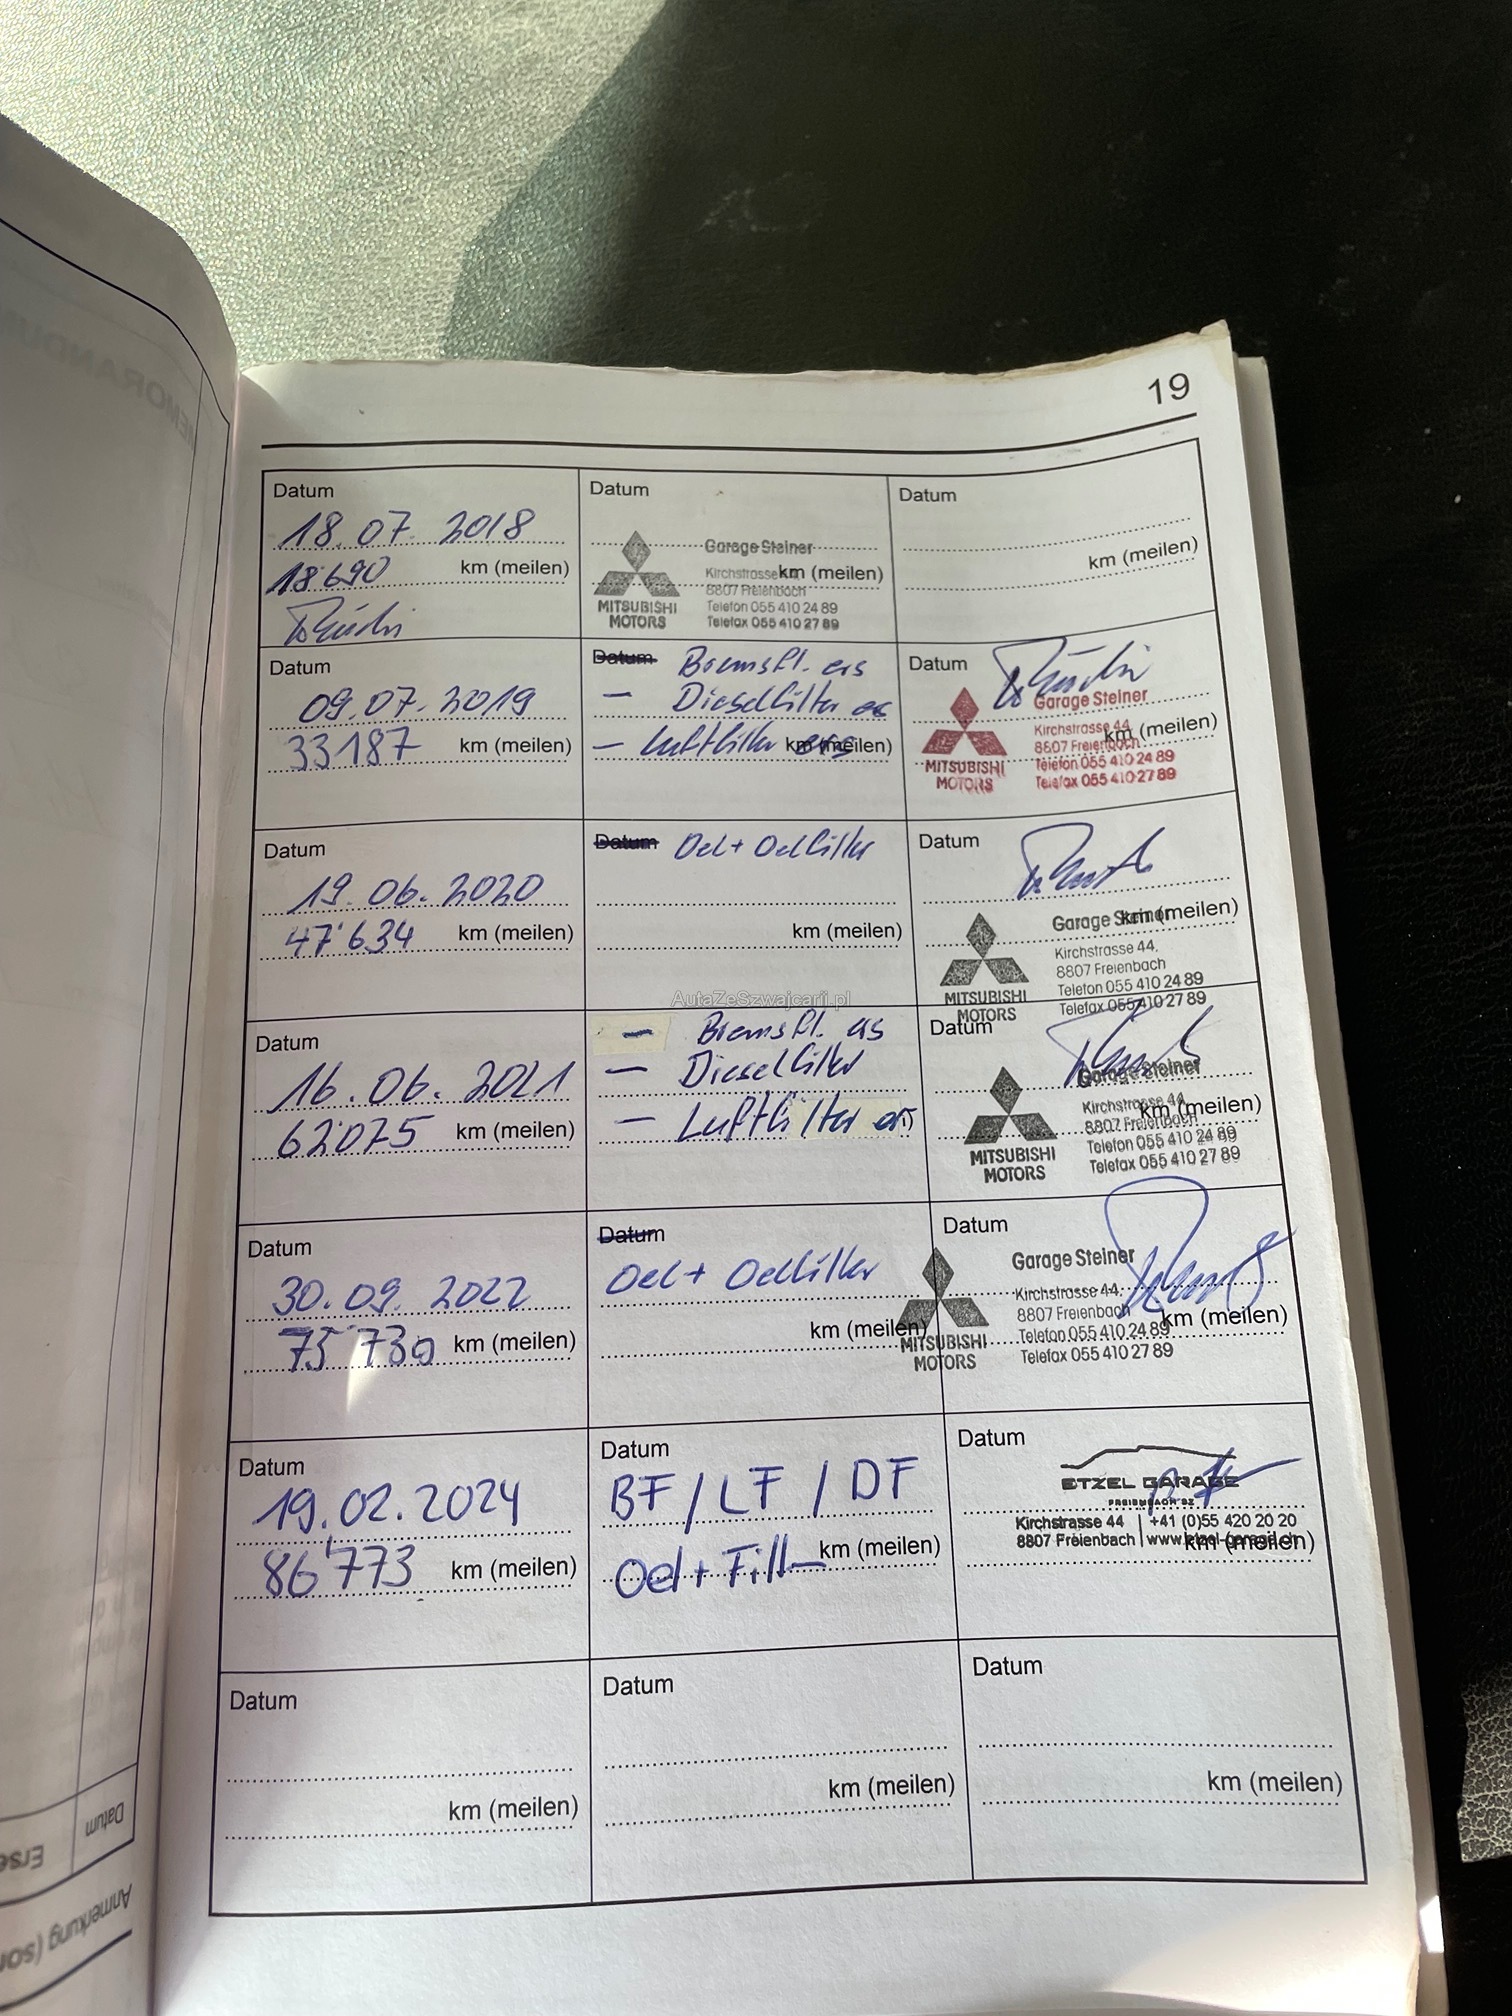 19
Datum
18.07.2018
18'690 km (meilen)
Datum
Garage Steiner
Kirchstrasse km (meilen)
8807 Freienbach
Telefon 055 410 24 89
Telefax 055 410 27 89
MITSUBISHI
MOTORS
Datum
km (meilen)
Datum
09.07.2019
33'187 km (meilen)
Datum Bremsfl. ers
– Dieselfilter ers
– Luftfilter ers km (meilen)
Datum
Garage Steiner
Kirchstrasse 44
km (meilen)
8807 Freienbach
Telefon 055 410 24 89
Telefax 055 410 27 89
MITSUBISHI
MOTORS
Datum
19.06.2020
47'634 km (meilen)
Datum Oel + Oelfilter
km (meilen)
Datum
Garage Steiner km (meilen)
Kirchstrasse 44.
8807 Freienbach
Telefon 055 410 24 89
Telefax 055 410 27 89
MITSUBISHI
MOTORS
AutaZeSzwajcarii.pl
Datum
16.06.2021
62'075 km (meilen)
– Bremsfl. ers
– Dieselfilter
– Luftfilter ers
Datum
Garage Steiner
Kirchstrasse 44
km (meilen)
8807 Freienbach
Telefon 055 410 24 89
Telefax 055 410 27 89
MITSUBISHI
MOTORS
Datum
30.09.2022
75'730 km (meilen)
Datum
Oel + Oelfilter
km (meilen)
Datum
Garage Steiner
Kirchstrasse 44.
8807 Freienbach
km (meilen)
Telefon 055 410 24 89
Telefax 055 410 27 89
MITSUBISHI
MOTORS
Datum
19.02.2024
86'773 km (meilen)
Datum
BF / LF / DF
Oel + Filter km (meilen)
Datum
ETZEL GARAGE
FREIENBACH SZ
Kirchstrasse 44 | +41 (0)55 420 20 20
8807 Freienbach | www.etzel-garage.ch
km (meilen)
Datum
km (meilen)
Datum
km (meilen)
Datum
km (meilen)
Datum
Anmerkung